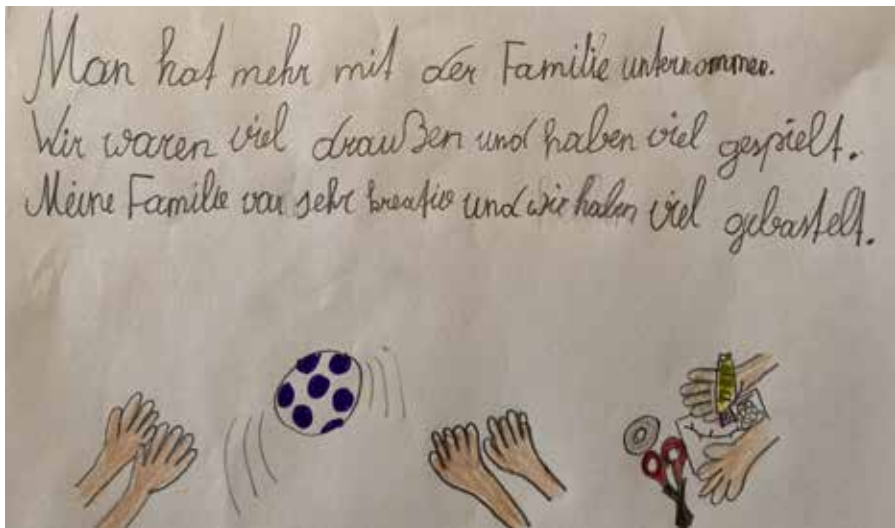 Man hat mehr mit der Familie unternommen.
Wir waren viel draußen und haben viel gespielt.
Meine Familie war sehr kreativ und wir haben viel gebastelt.